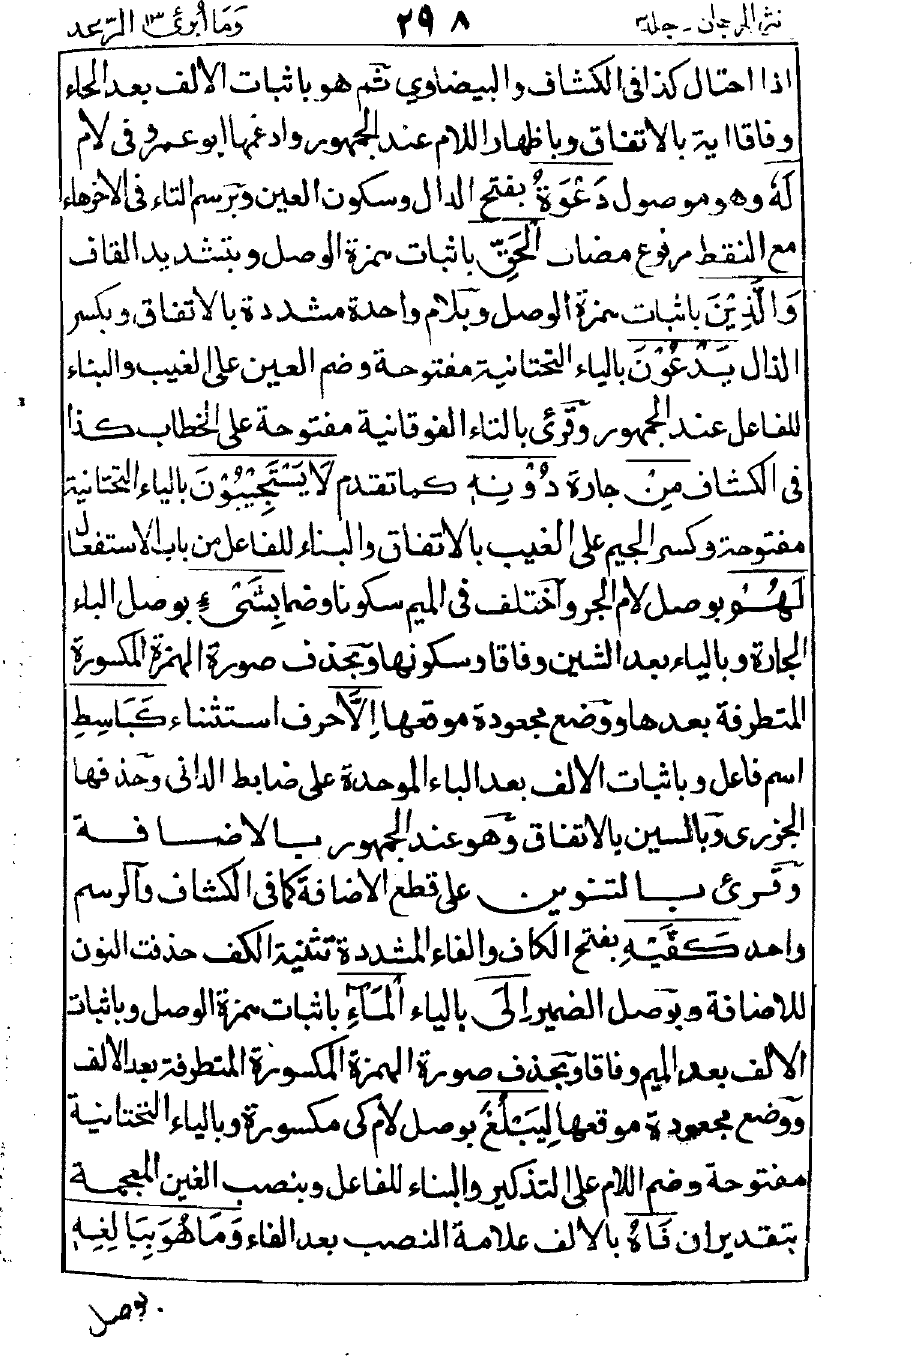 نثر المرجان ـ جلد ٣ ٢٩٨ وَمَا أُبرئ ١٣ الرّعد
اذا احتال كذا فى الكشاف والبيضاوي ثم هو باثبات الالف بعد الحاء
وفاقا اية بالاتفاق وباظهار اللام عند الجمهور وادغمها ابو عمرو فى لام
لَهٗ وهو موصول دَعْوَةُ بفتح الدال وسكون العين وبرسم التاء فى الاخر هاء
مع النقط مرفوع مضاف الْحَقِّ باثبات همزة الوصل وبتشديد القاف
وَالَّذِيْنَ باثبات همزة الوصل وبلام واحدة مشددة بالاتفاق وبكسر
الذال يَدْعُوْنَ بالياء التحتانية مفتوحة وضم العين على الغيب والبناء
للفاعل عند الجمهور وقرئ بالتاء الفوقانية مفتوحة على الخطاب كذا
فى الكشاف مِنْ جارة دُوْنِهٖ كما تقدم لَا يَسْتَجِيْبُوْنَ بالياء التحتانية
مفتوحة وكسر الجيم على الغيب بالاتفاق والبناء للفاعل من باب الاستفعال
لَهُمْ بوصل لام الجر واختلف فى الميم سكونا وضما بِشَىْءٍ بوصل الباء
الجارة وبالياء بعد الشين وفاقا وسكونها وبحذف صورة الهمزة المكسورة
المتطرفة بعدها ووضع مجعودة موقعها اِلَّا حرف استثناء كَبَاسِطِ
اسم فاعل وباثبات الالف بعد الباء الموحدة على ضابط الدانى وحذفها
الجزرى وبالسين بالاتفاق وهو عند الجمهور بالاضافة
وقرئ بالتنوين على قطع الاضافة كما فى الكشاف والرسم
واحد كَفَّيْهِ بفتح الكاف والفاء المشددة تثنية الكف حذفت النون
للاضافة وبوصل الضمير اِلَى بالياء الْمَآءِ باثبات همزة الوصل وباثبات
الالف بعد الميم وفاقا وبحذف صورة الهمزة المكسورة المتطرفة بعد الالف
ووضع مجعودة موقعها لِيَبْلُغَ بوصل لام كى مكسورة وبالياء التحتانية
مفتوحة وضم اللام على التذكير والبناء للفاعل وبنصب الغين المعجمة
بتقدير ان فَاهُ بالالف علامة النصب بعد الفاء وَمَا هُوَ بِبَالِغِهٖ
بوصل